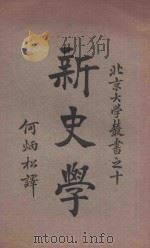 北京大学叢書之十
新史學
何炳松譯